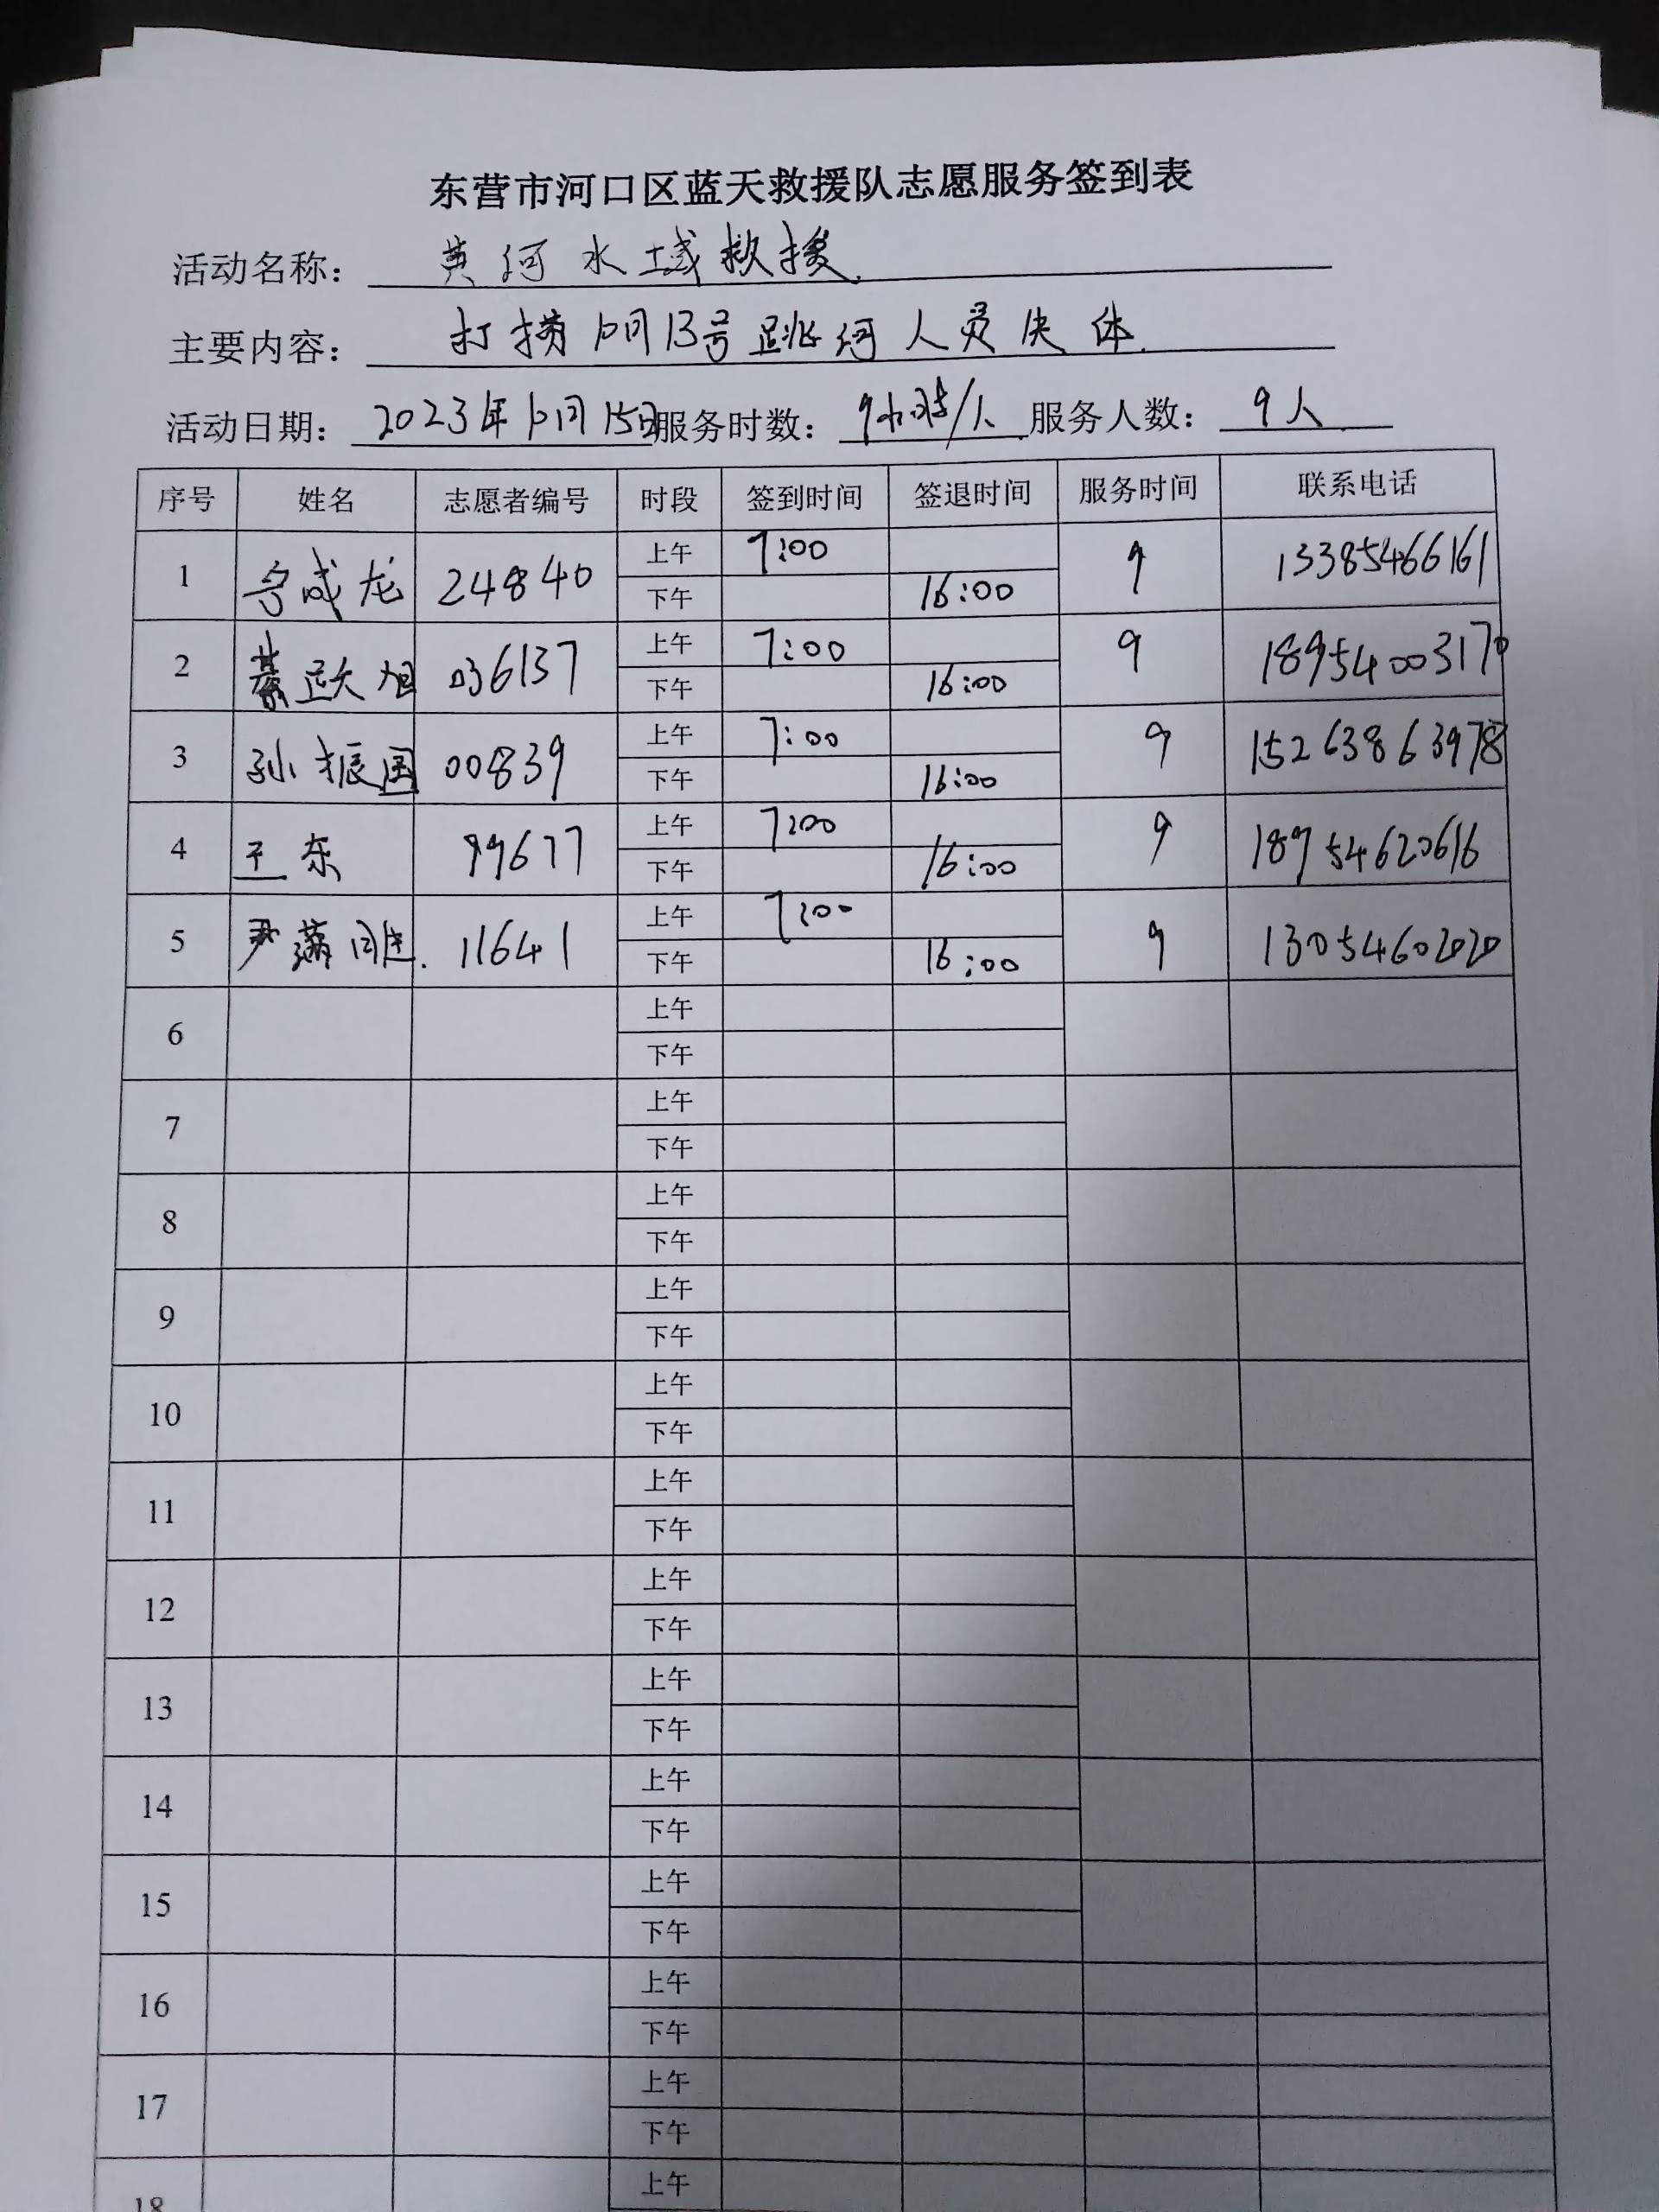 东营市河口区蓝天救援队志愿服务签到表
活动名称： 黄河水域救援
主要内容： 打捞10月13号跳河人员尸体.
活动日期： 2023年10月15日 服务时数： 9小时/人 服务人数： 9人
序号 姓名 志愿者编号 时段 签到时间 签退时间 服务时间 联系电话
1 成龙 24840 上午 7:00 9 13385466161
下午 16:00
2 綦跃旭 036137 上午 7:00 9 18954003170
下午 16:00
3 孙振国 00839 上午 7:00 9 15263863978
下午 16:00
4 王东 99677 上午 7:00 9 18954620616
下午 16:00
5 尹满 11641 上午 7:00 9 13054602020
下午 16:00
6 上午
下午
7 上午
下午
8 上午
下午
9 上午
下午
10 上午
下午
11 上午
下午
12 上午
下午
13 上午
下午
14 上午
下午
15 上午
下午
16 上午
下午
17 上午
下午
18 上午